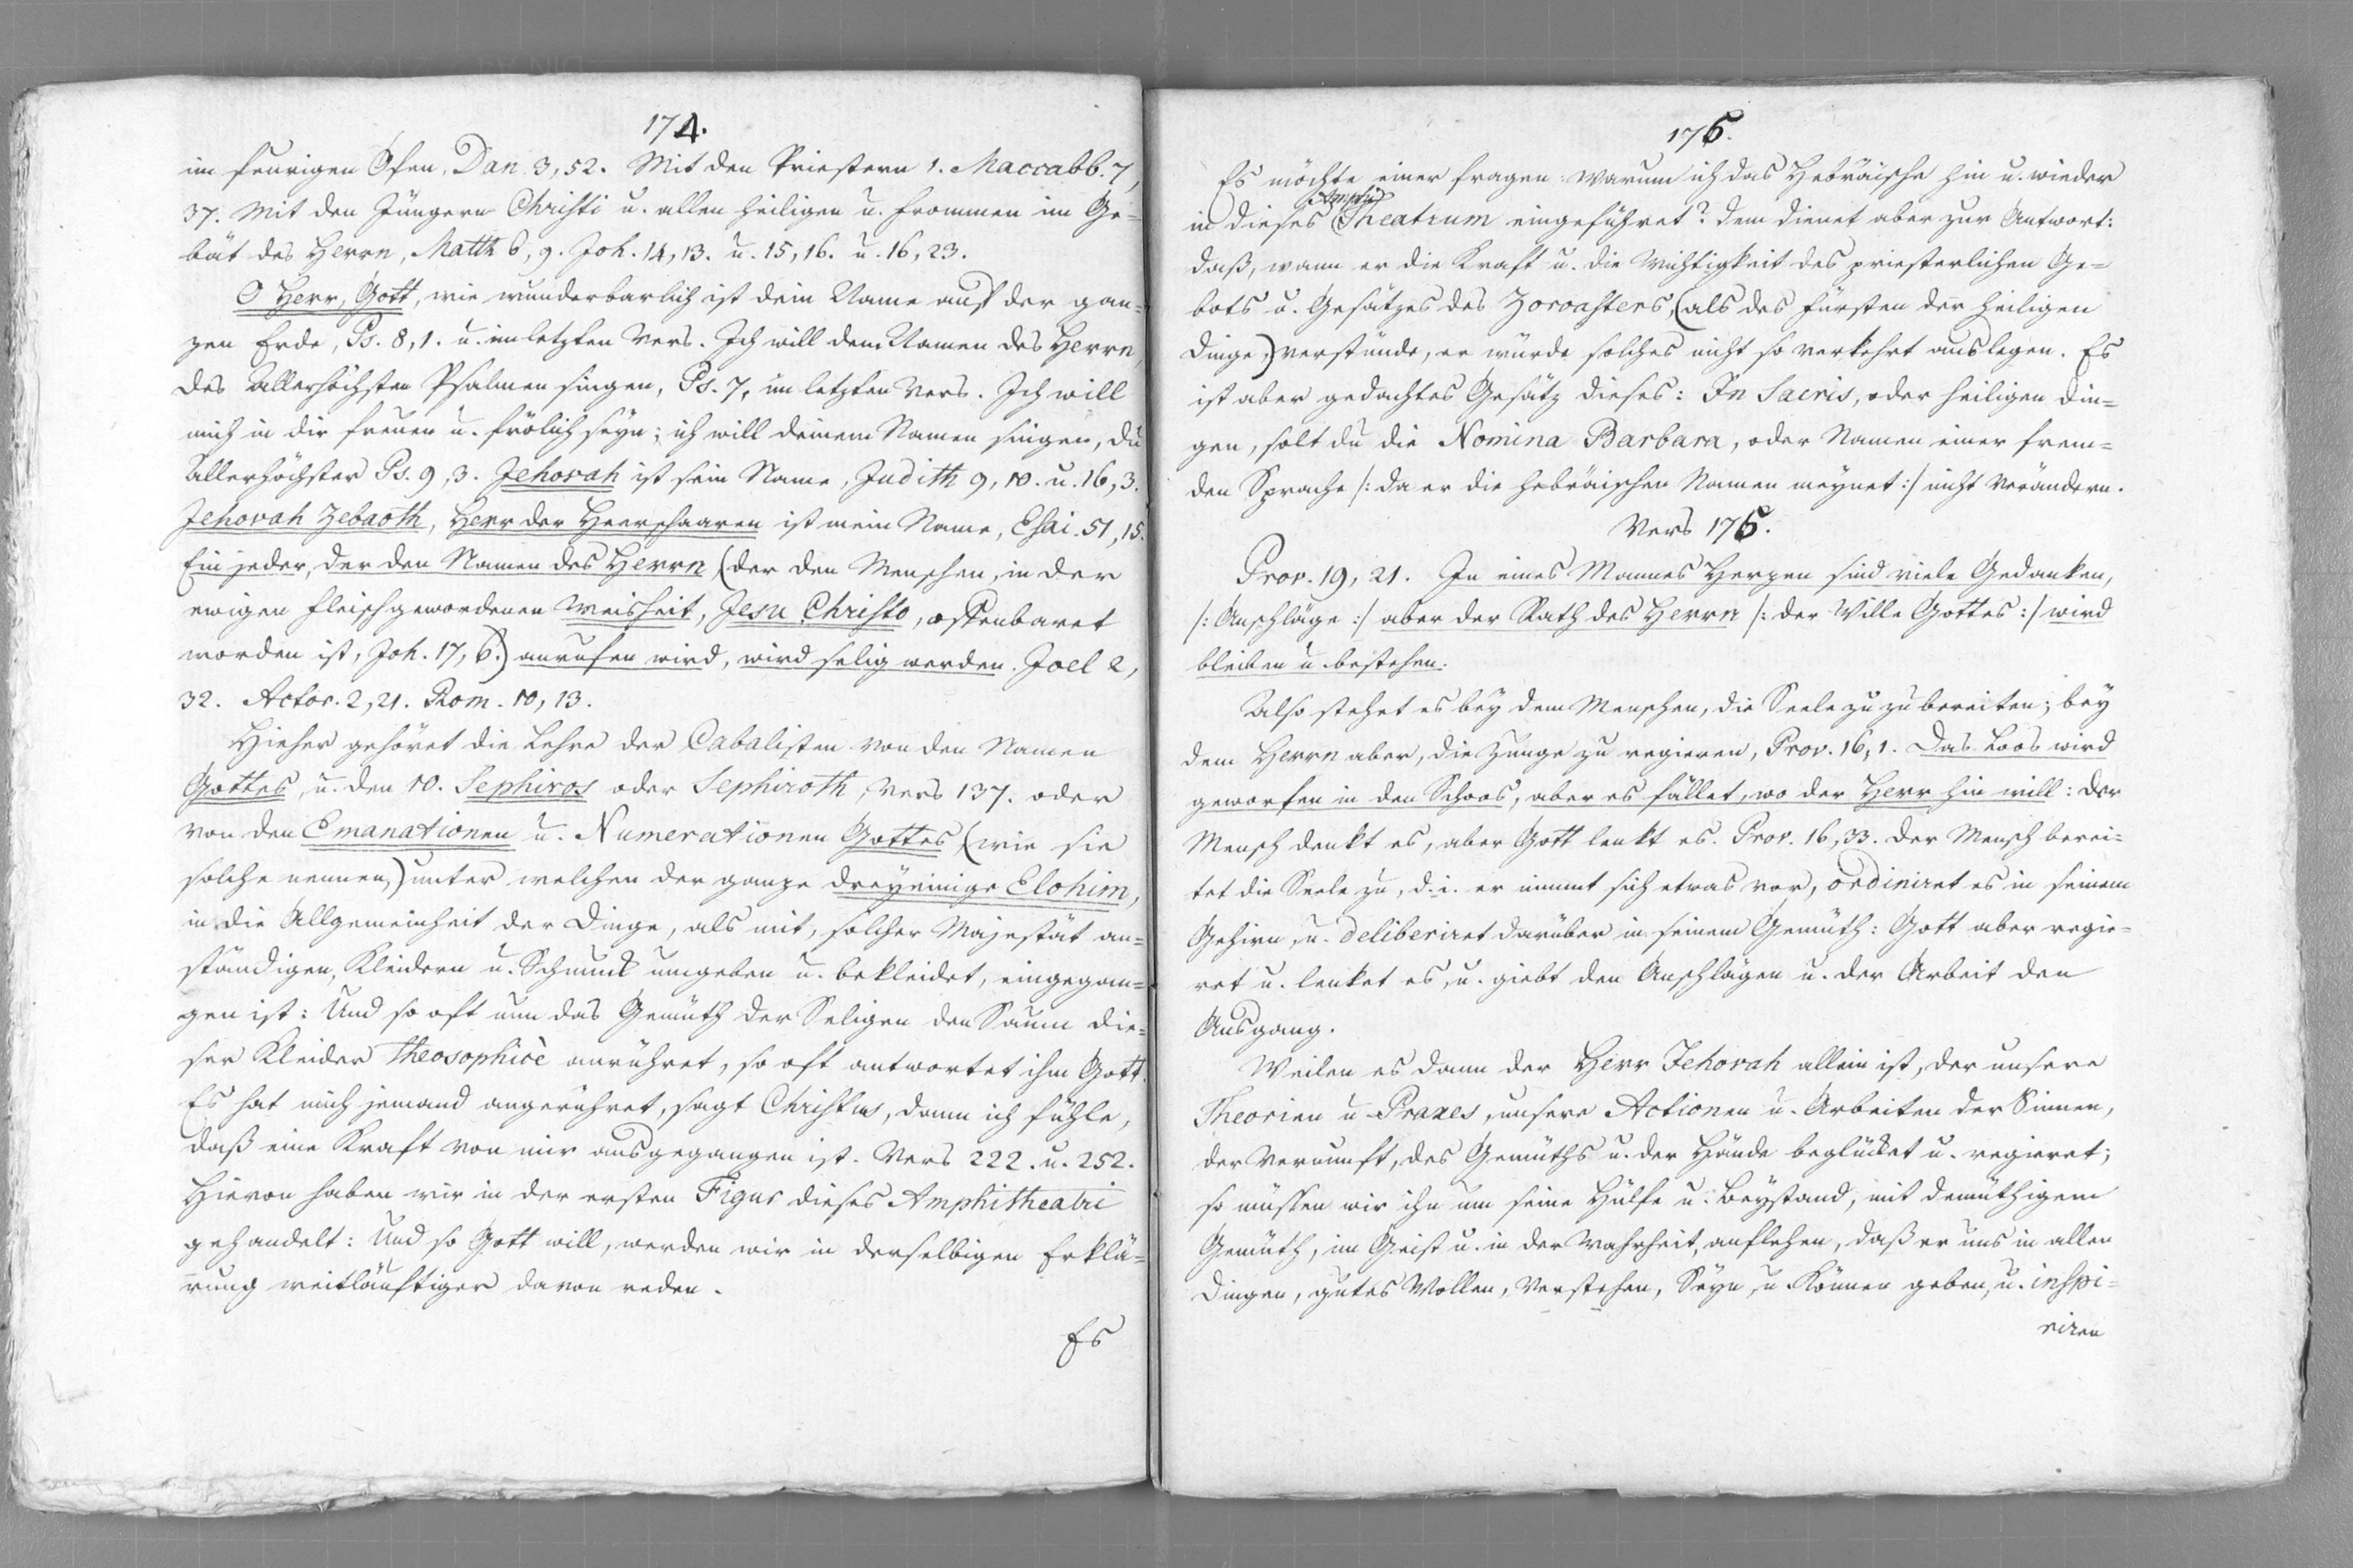 174.
im feurigen Ofen, Dan. 3, 52. Mit den Priestern 1. Maccabb. 7,
37. Mit den Jüngern Christi u. allen heiligen u. frommen im Ge=
bät des Herrn, Matth 6, 9. Joh. 14, 13. u. 15, 16. u. 16, 23.
O Herr, Gott, wie wunderbarlich ist dein Name auf der gan=
zen Erde, Ps. 8, 1. u. im letzten Vers. Ich will dem Namen des Herrn,
des Allerhöchsten Psalmen singen, Ps. 7, im letzten Vers. Ich will
mich in dir freuen u. frölich seyn; ich will deinem Namen singen, du
Allerhöchster Ps. 9, 3. Jehovah ist sein Name, Judith 9, 10. u. 16, 3.
Jehovah Zebaoth, Herr der Heerschaaren ist mein Name, Esai. 51, 15.
Ein jeder, der den Namen des Herrn (der den Menschen, in der
ewigen fleischgewordenen Weisheit, Jesu Christo, offenbaret
worden ist, Joh. 17, 6.) anrufen wird, wird selig werden. Joel 2,
32. Actor. 2, 21. Rom. 10, 13.
Hieher gehöret die Lehre der Cabalisten von den Namen
Gottes, u. den 10. Sephiros oder Sephiroth, Vers 137. oder
von den Emanationen u. Numerationen Gottes (wie sie
solche nennen,) unter welchen der ganze dreyeinige Elohim,
in die Allgemeinheit der Dinge, als mit, solcher Majestät an=
ständigen, Kleidern u. Schmuck umgeben u. bekleidet, eingegan=
gen ist: Und so oft nun das Gemüth der Seligen den Saum die=
ser Kleider Theosophicè anrühret, so oft antwortet ihm Gott.
Es hat mich jemand angerühret, sagt Christus, dann ich fühle,
daß eine Kraft von mir ausgegangen ist. Vers 222. u. 252.
Hievon haben wir in der ersten Figur dieses Amphitheatri
gehandelt: Und so Gott will, werden wir in derselbigen Erklä=
rung weitläuftiger davon reden.
Es
175.
Es möchte einer fragen: warum ich das Hebräische hin u. wieder
Amphi
in dieses Theatrum eingeführet? dem dienet aber zur Antwort:
daß, wann er die Kraft u. die Wichtigkeit des priesterlichen Ge=
bots u. Gesätzes des Zoroasters, (als des Fürsten der heiligen
Dinge,) verstünde, er würde solches nicht so verkehrt auslegen. Es
ist aber gedachtes Gesätz dieses: In Sacris, oder heiligen Din=
gen, solt du die Nomina Barbara, oder Namen einer frem=
den Sprache /: da er die hebräischen Namen meynet :/ nicht verändern.
Vers 175.
Prov. 19, 21. In eines Mannes Herzen sind viele Gedanken,
/: Anschläge :/ aber der Rath des Herrn /: der Wille Gottes :/ wird
bleiben u. bestehen.
Also stehet es bey dem Menschen, die Seele zu zu bereiten; bey
dem Herrn aber, die Zunge zu regieren, Prov. 16, 1. Das Loos wird
geworfen in den Schoos, aber es fället, wo der Herr hin will: Der
Mensch denkt es, aber Gott lenkt es. Prov. 16, 33. Der Mensch berei=
tet die Seele zu, d. i. er nimmt sich etwas vor, ordiniret es in seinem
Gehirn, u. deliberiret darüber in seinem Gemüth: Gott aber regie=
ret u. lenket es, u. giebt den Anschlägen u. der Arbeit den
Ausgang.
Weilen es dann der Herr Jehovah allein ist, der unsere
Theorien u. Praxes, unsere Actionen u. Arbeiten der Sinnen,
der Vernunft, des Gemüths u. der Hände beglücket u. regieret;
so müssen wir ihn um seine Hülfe u. Beystand, mit demüthigem
Gemüth, im Geist u. in der Wahrheit, anflehen, daß er uns in allen
Dingen, gutes Wollen, Verstehen, Seyn, u. Können geben, u. inspi=
riren